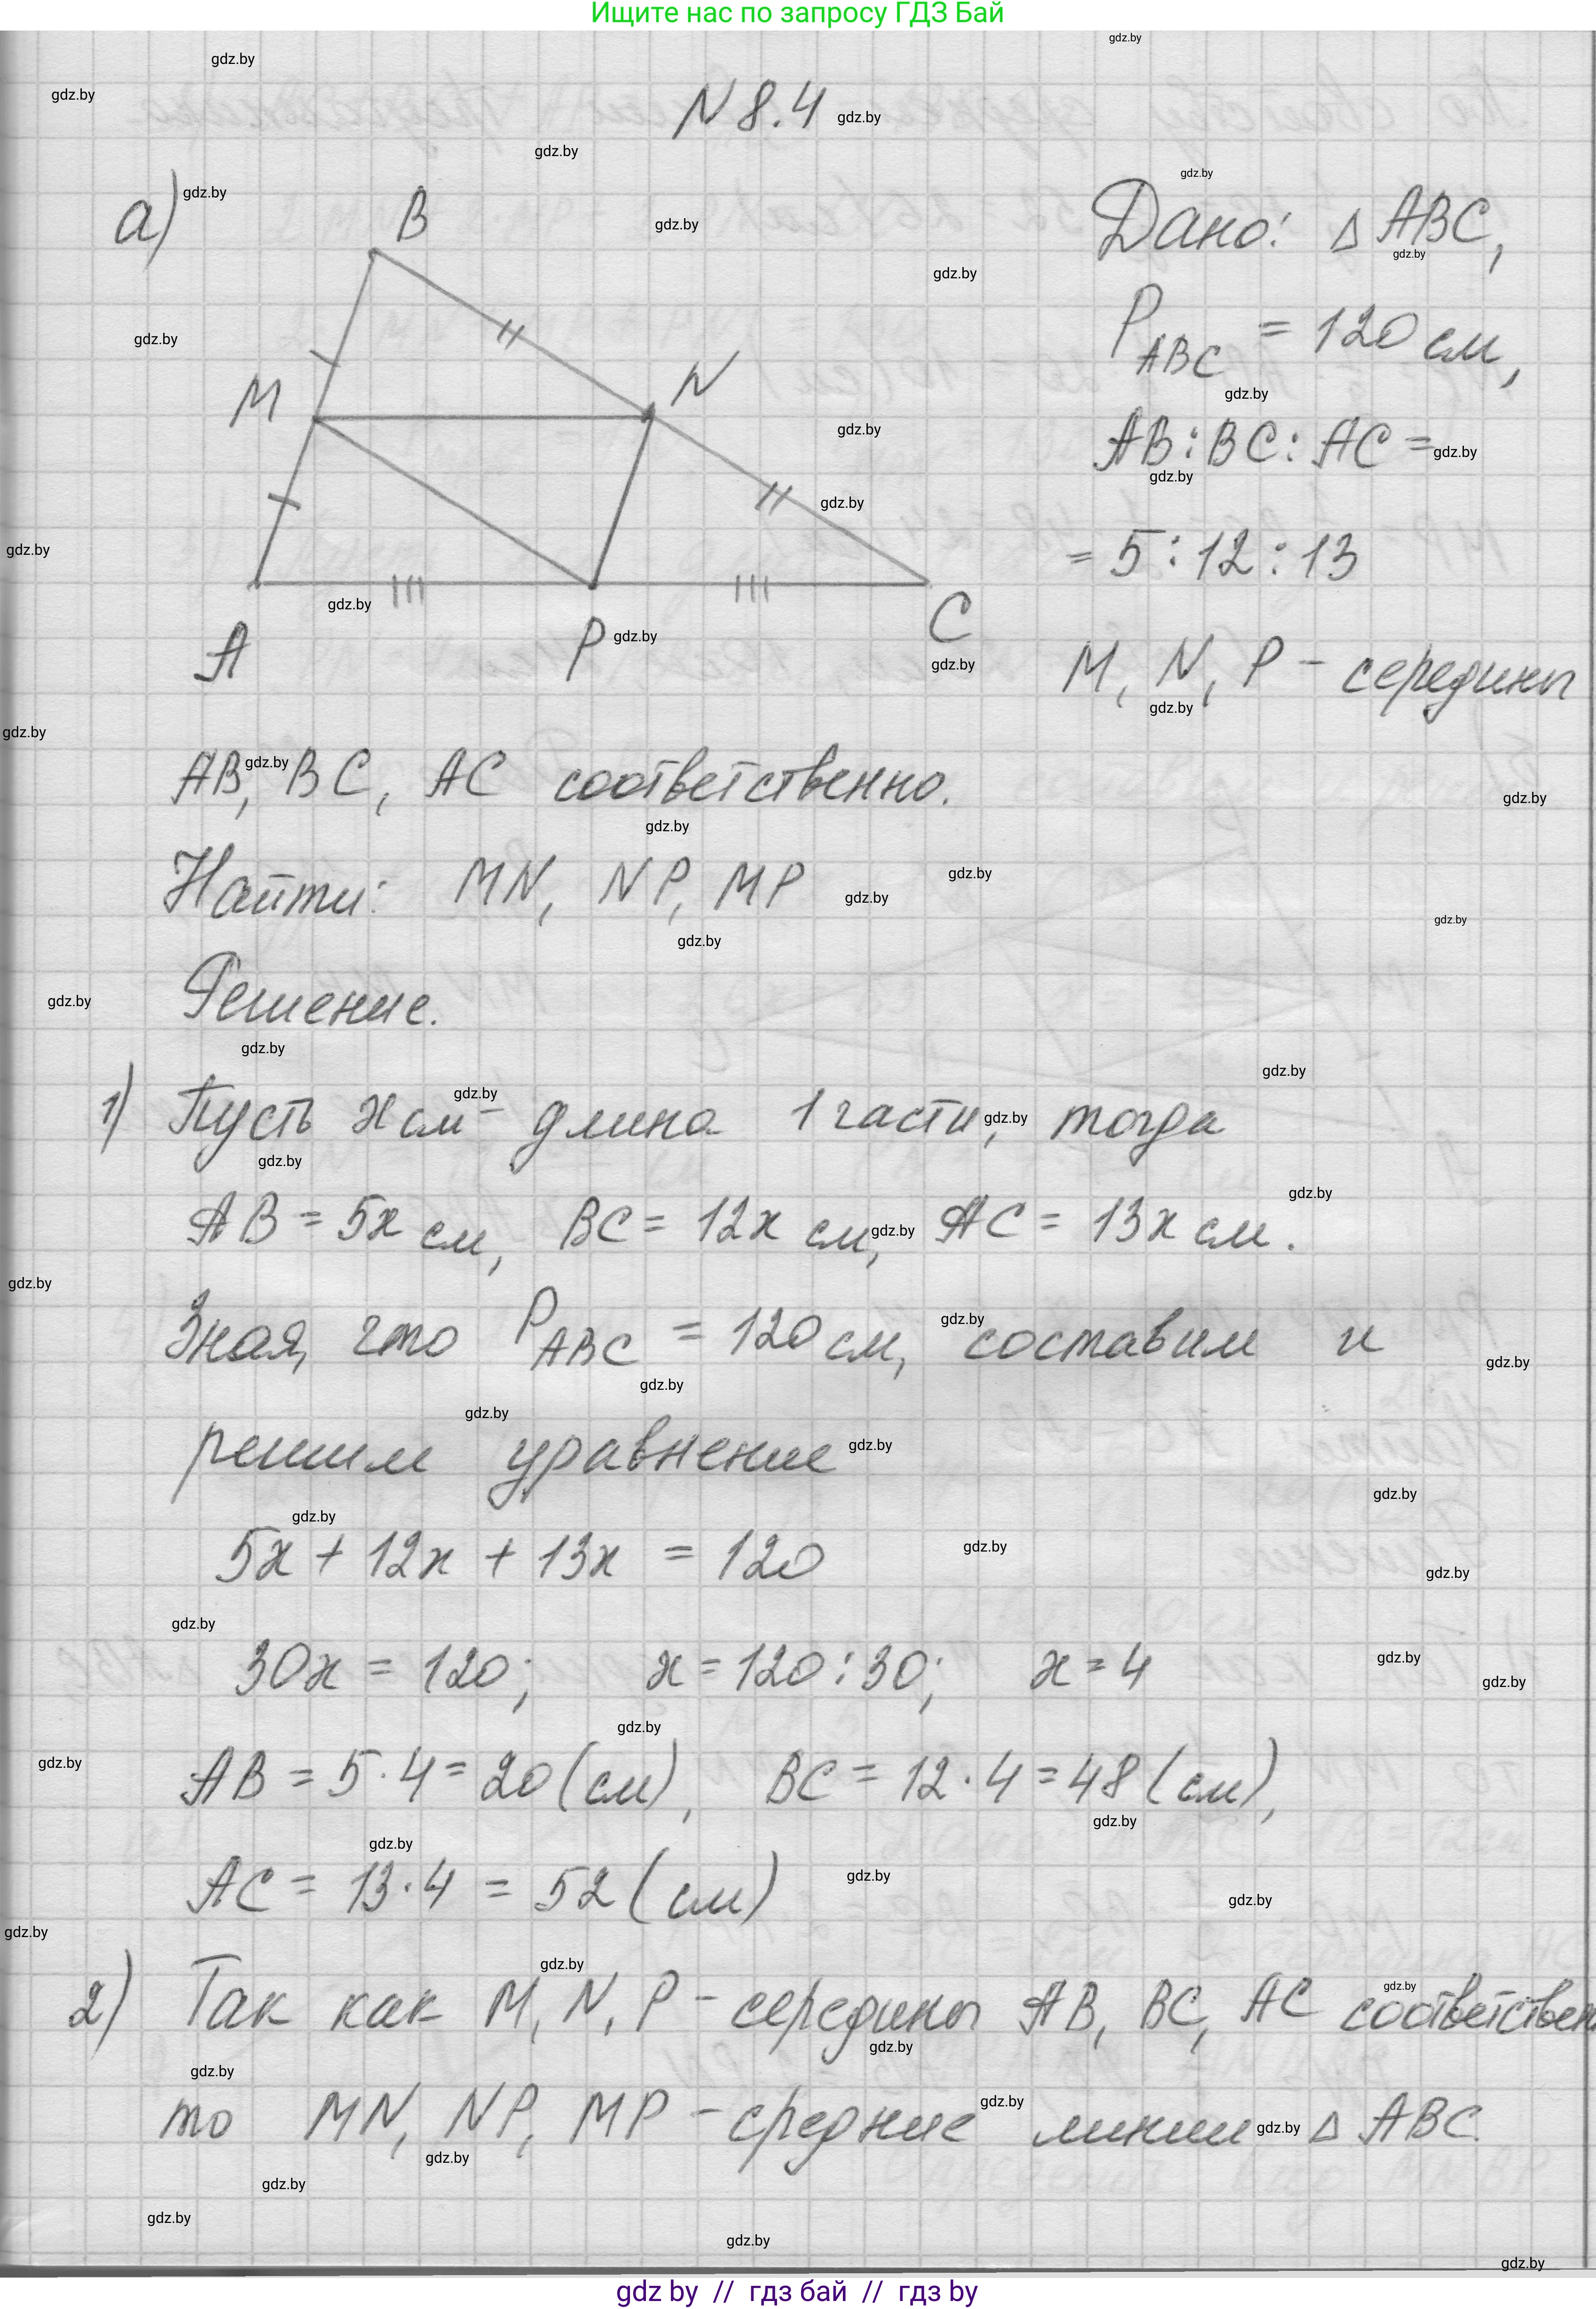 Ищите нас по запросу ГДЗ Бай
N 8.4
а)
B
M
N
A
P
C
Дано: △ ABC,
P_ABC = 120 см,
AB : BC : AC =
= 5 : 12 : 13
M, N, P - середины
AB, BC, AC соответственно.
Найти: MN, NP, MP
Решение.
1) Пусть x см - длина 1 части, тогда
AB = 5x см, BC = 12x см, AC = 13x см.
Зная, что P_ABC = 120 см, составим и
решим уравнение
5x + 12x + 13x = 120
30x = 120; x = 120 : 30; x = 4
AB = 5 · 4 = 20 (см), BC = 12 · 4 = 48 (см),
AC = 13 · 4 = 52 (см)
2) Так как M, N, P - середины AB, BC, AC соответствен
то MN, NP, MP - средние линии △ ABC.
gdz by // гдз бай // гдз by